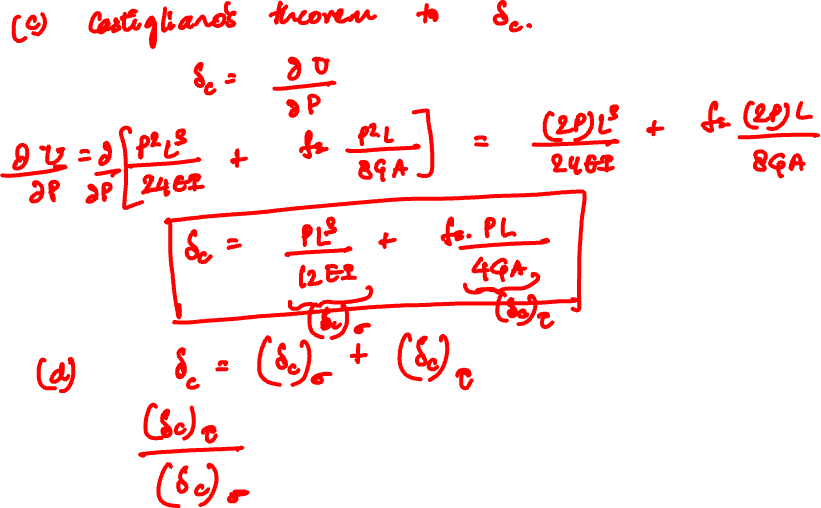 (c) Castigliano's theorem to δc.
δc = ∂U/∂P
∂U/∂P = ∂/∂P [P²L³/24EI + fs P²L/8GA] = (2P)L³/24EI + fs (2P)L/8GA
δc = PL³/12EI + fs. PL/4GA,
(δc)σ (δc)τ
(d) δc = (δc)σ + (δc)τ
(δc)τ/(δc)σ